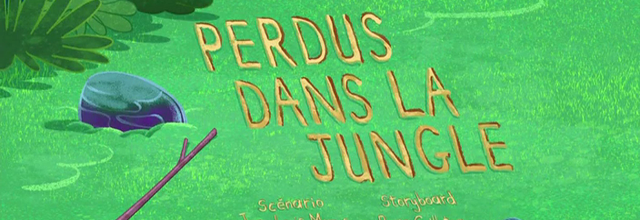 PERDUS
DANS LA
JUNGLE
Scénario
Storyboard